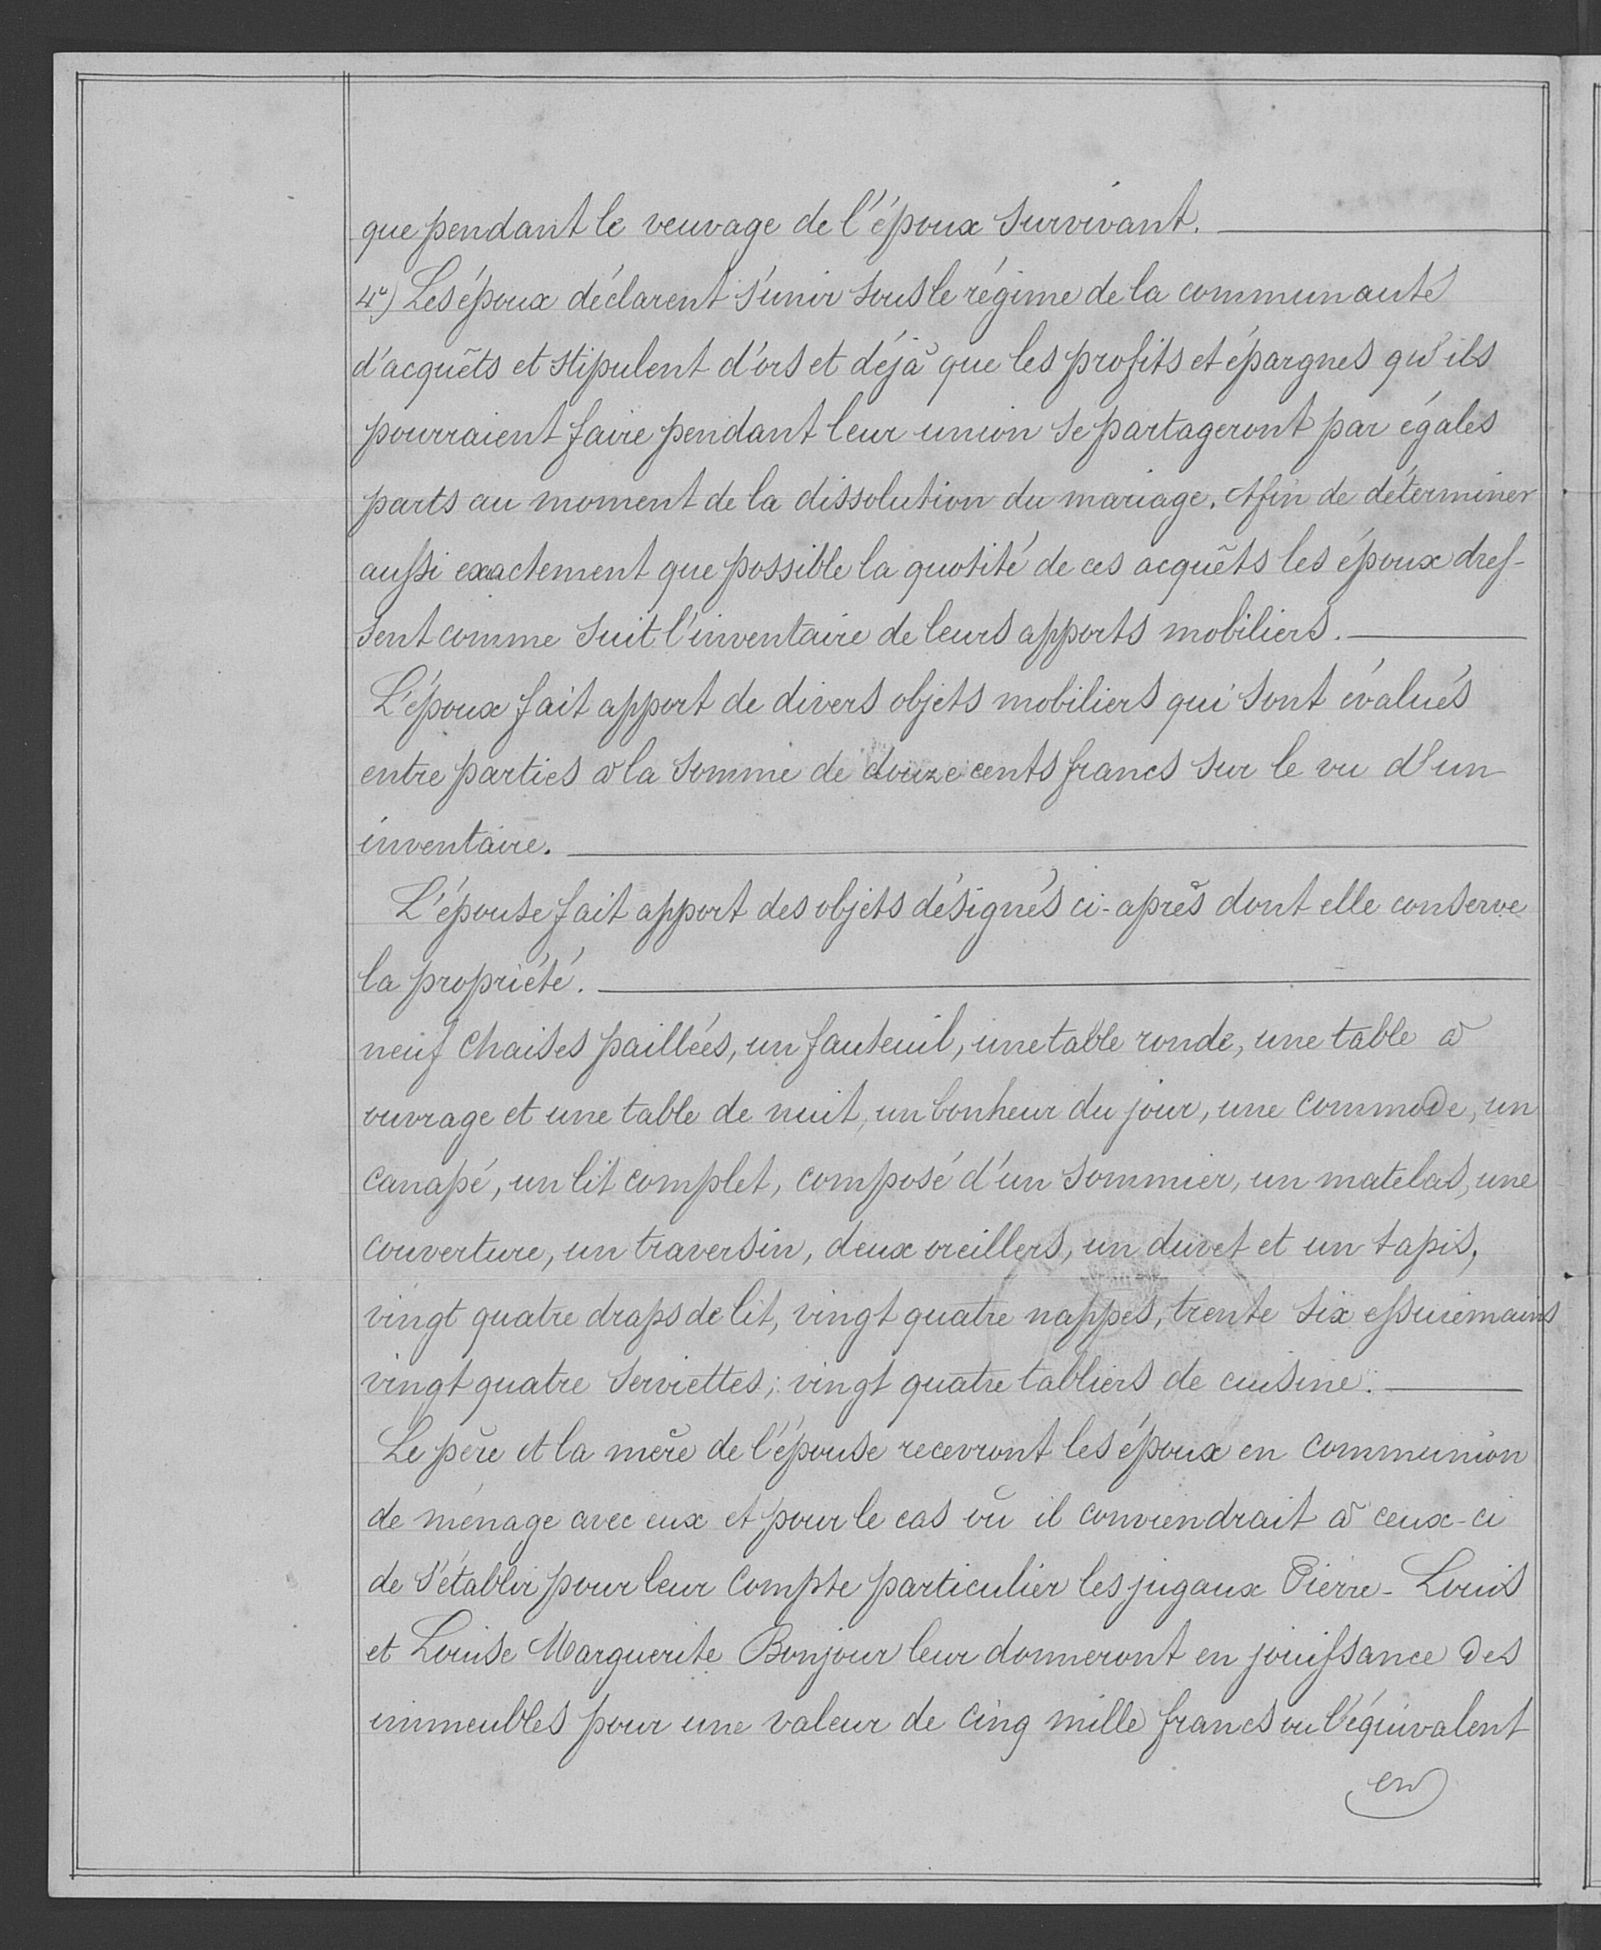 que pendant le veuvage de l'époux survivant.
4°) Les époux déclarent s'unir sous le régime de la communauté
d'acquêts et stipulent d'ors et déjà que les profits et épargnes qu'ils
pourraient faire pendant leur union se partageront par égales
parts au moment de la dissolution du mariage. Afin de déterminer
aussi exactement que possible la quotité de ces acquêts les époux dres-
sent comme suit l'inventaire de leurs apports mobiliers.
L'époux fait apport de divers objets mobiliers qui sont évalués
entre parties à la somme de douze cents francs sur le vu d'un
inventaire.
L'épouse fait apport des objets désignés ci-après dont elle conserve
la propriété.
neuf chaises paillées, un fauteuil, une table ronde, une table à
ouvrage et une table de nuit, un bonheur du jour, une commode, un
canapé, un lit complet, composé d'un sommier, un matelas, une
couverture, un traversin, deux oreillers, un duvet et un tapis,
vingt quatre draps de lit, vingt quatre nappes, trente six essuiemains
vingt quatre serviettes; vingt quatre tabliers de cuisine.
Le père et la mère de l'épouse recevront les époux en communion
de ménage avec eux et pour le cas où il conviendrait à ceux-ci
de s'établir pour leur compte particulier les jugaux Pierre-Louis
et Louise Marguerite Bonjour leur donneront en jouissance des
immeubles pour une valeur de cinq mille francs ou l'équivalent
en